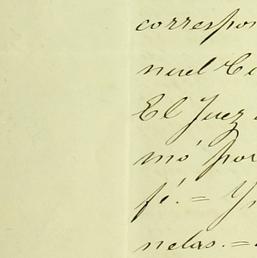 correspon
nuel Ce
El Juez
mó por
fé.= Y
nelas.=